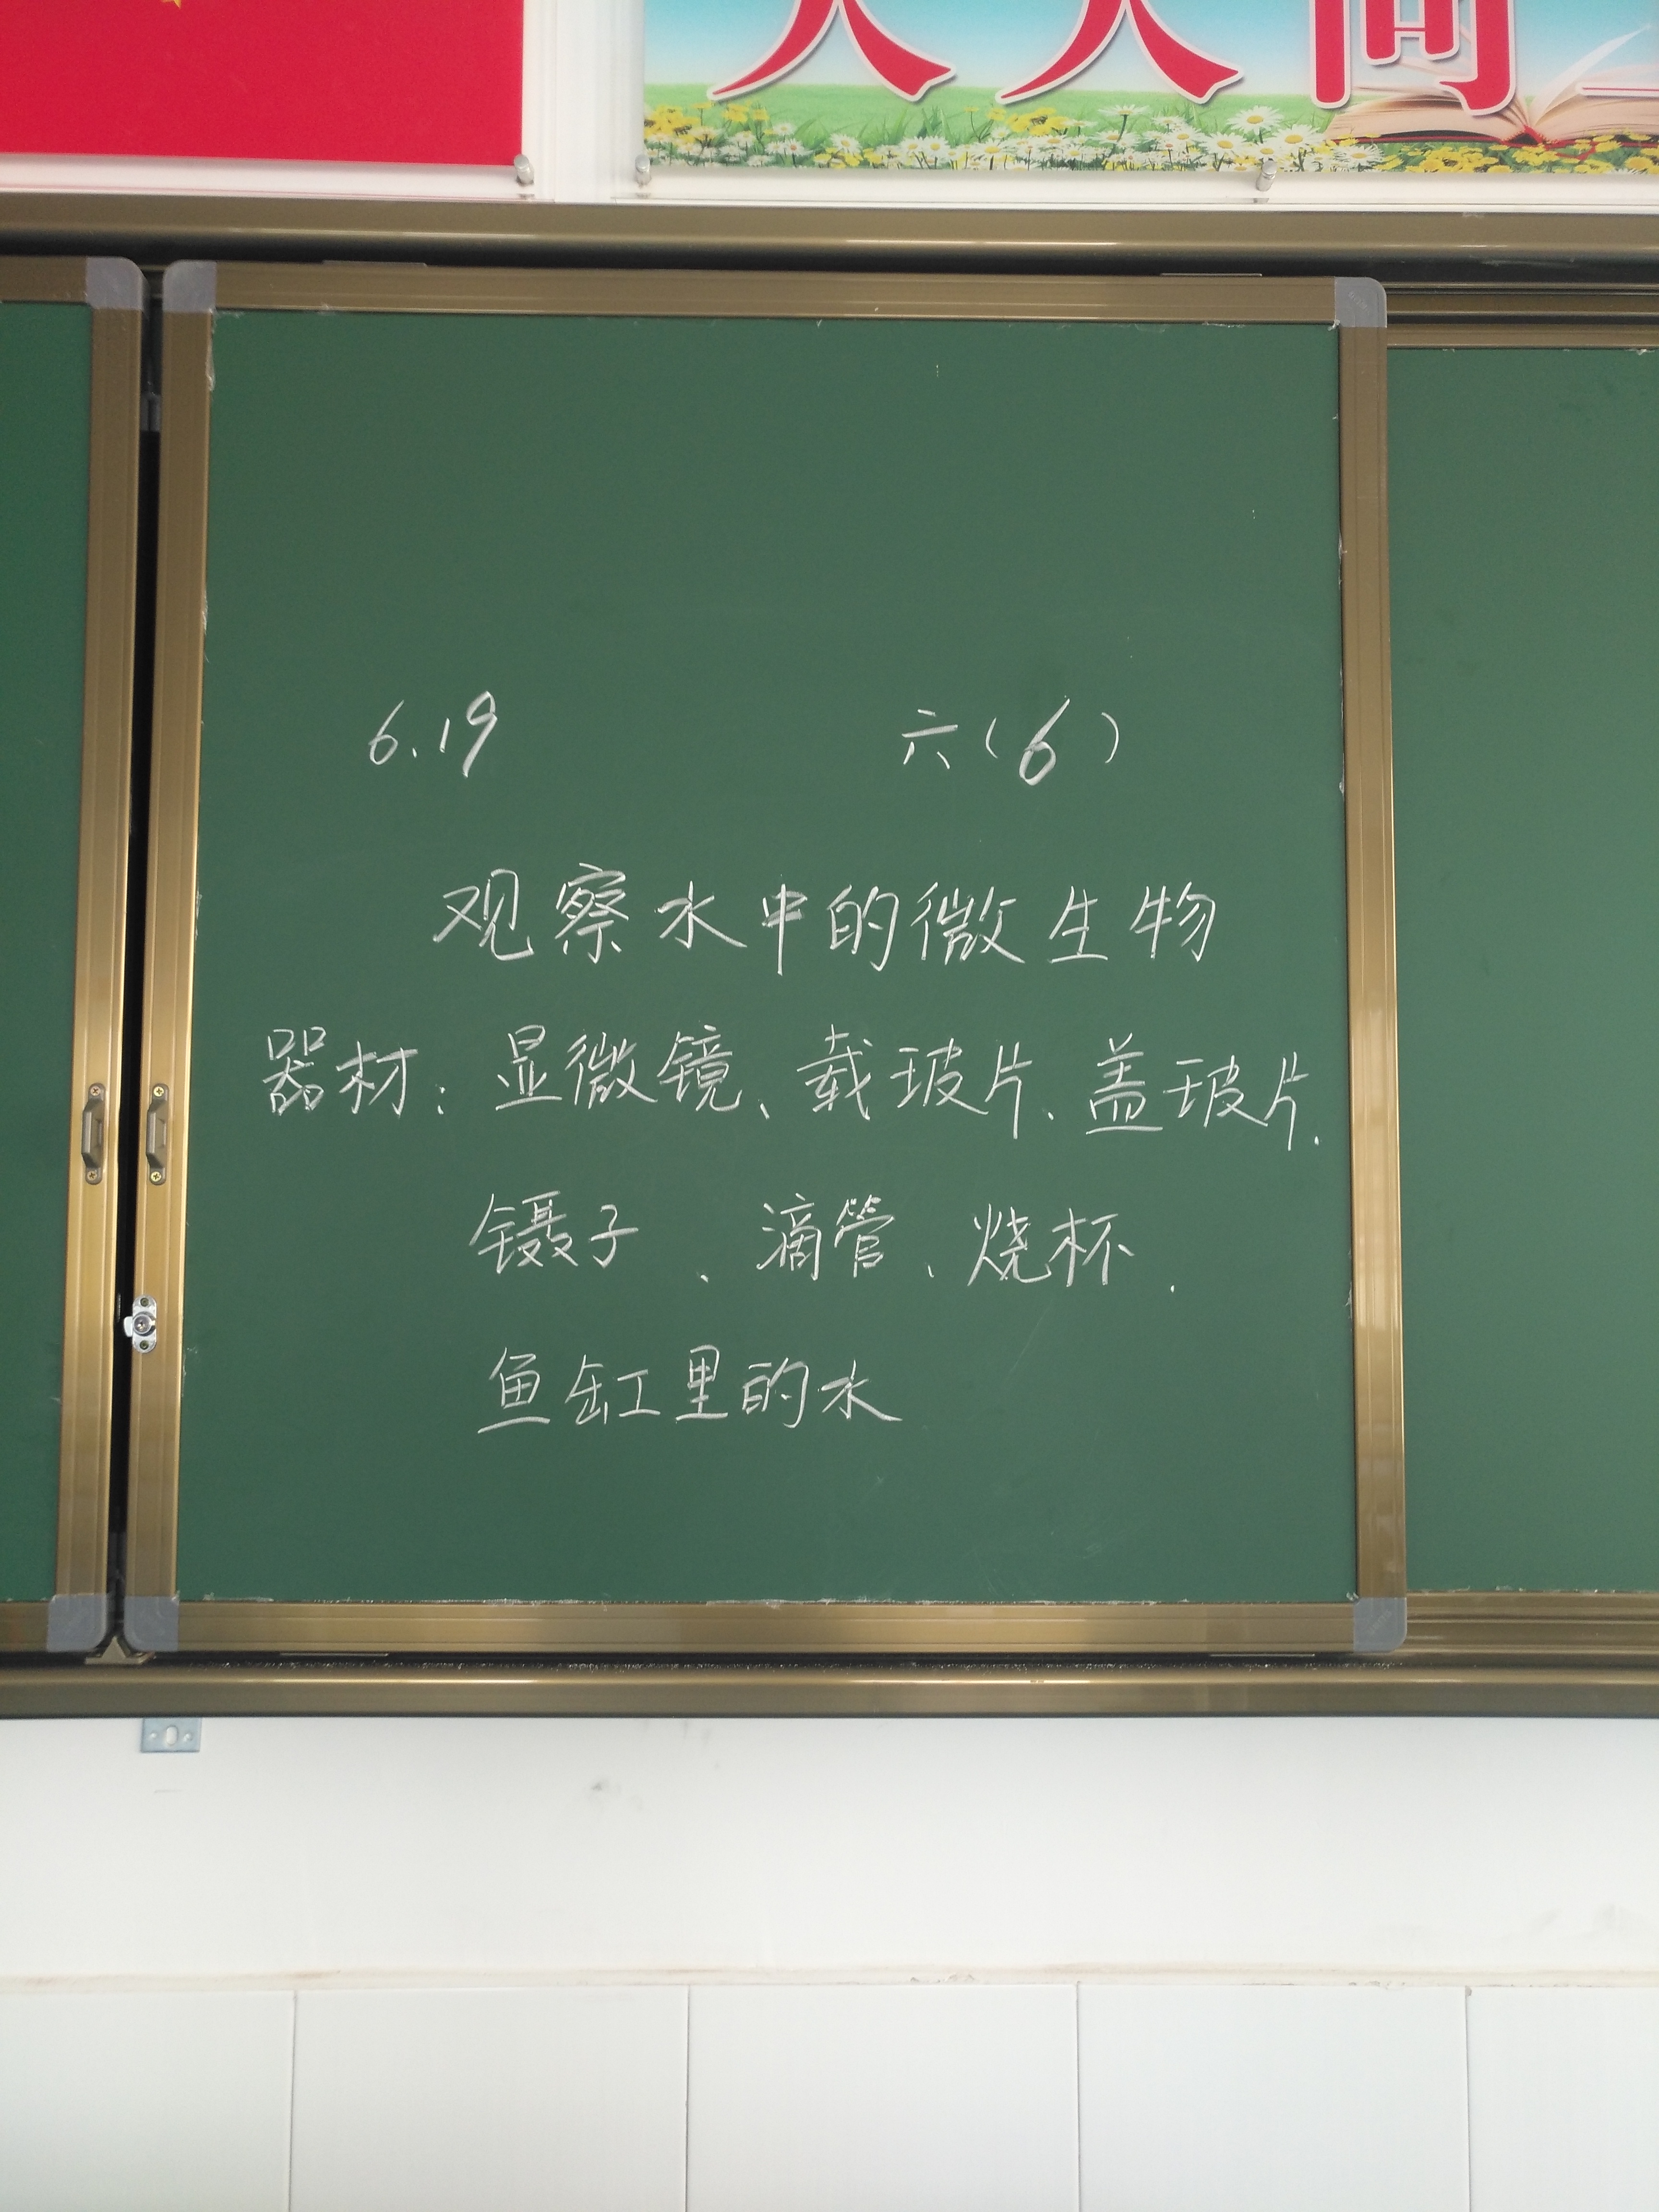 天天向上
6.19 六(6)
观察水中的微生物
器材：显微镜、载玻片、盖玻片、
镊子、滴管、烧杯、
鱼缸里的水